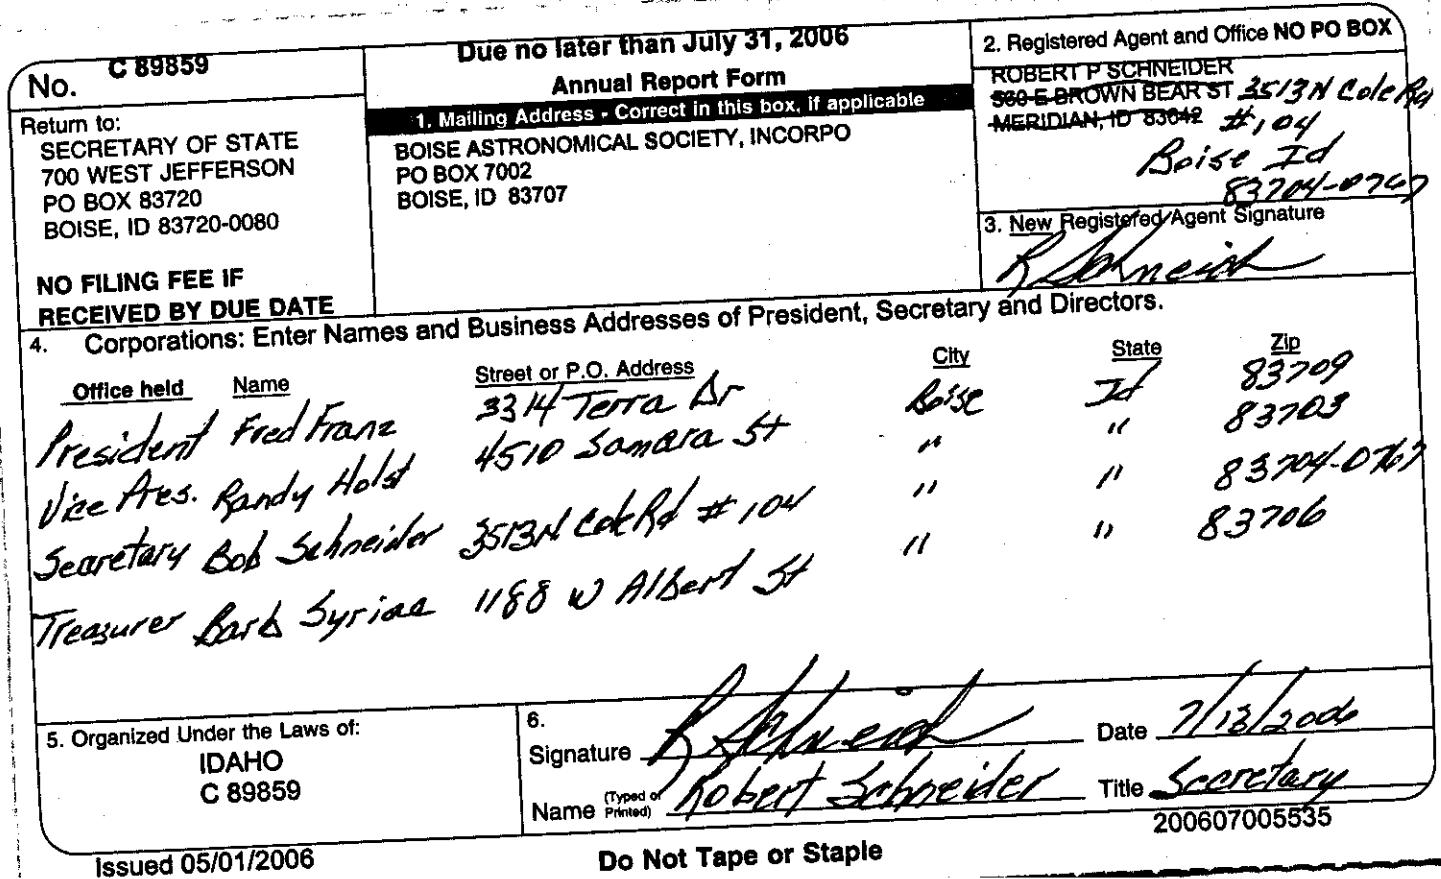 No. C 89859
Return to:
SECRETARY OF STATE
700 WEST JEFFERSON
PO BOX 83720
BOISE, ID 83720-0080
NO FILING FEE IF
RECEIVED BY DUE DATE
Due no later than July 31, 2006
Annual Report Form
1. Mailing Address - Correct in this box, if applicable
BOISE ASTRONOMICAL SOCIETY, INCORPO
PO BOX 7002
BOISE, ID 83707
2. Registered Agent and Office NO PO BOX
ROBERT P SCHNEIDER
560 E BROWN BEAR ST 3513 N Cole Rd
MERIDIAN, ID 83642 #104
Boise Id
83704-0767
3. New Registered Agent Signature
R Schneider
4. Corporations: Enter Names and Business Addresses of President, Secretary and Directors.
Office held Name Street or P.O. Address City State Zip
President Fred Franz 3314 Terra Dr Boise Id 83709
Vice Pres. Randy Holst 4510 Samara St " " 83703
Secretary Bob Schneider 3513 N Cole Rd #104 " " 83704-0767
Treasurer Barb Syriac 1188 W Albert St " " 83706
5. Organized Under the Laws of:
IDAHO
C 89859
6.
Signature R Schneider Date 7/13/2006
Name (Typed or Printed) Robert Schneider Title Secretary
200607005535
Issued 05/01/2006
Do Not Tape or Staple